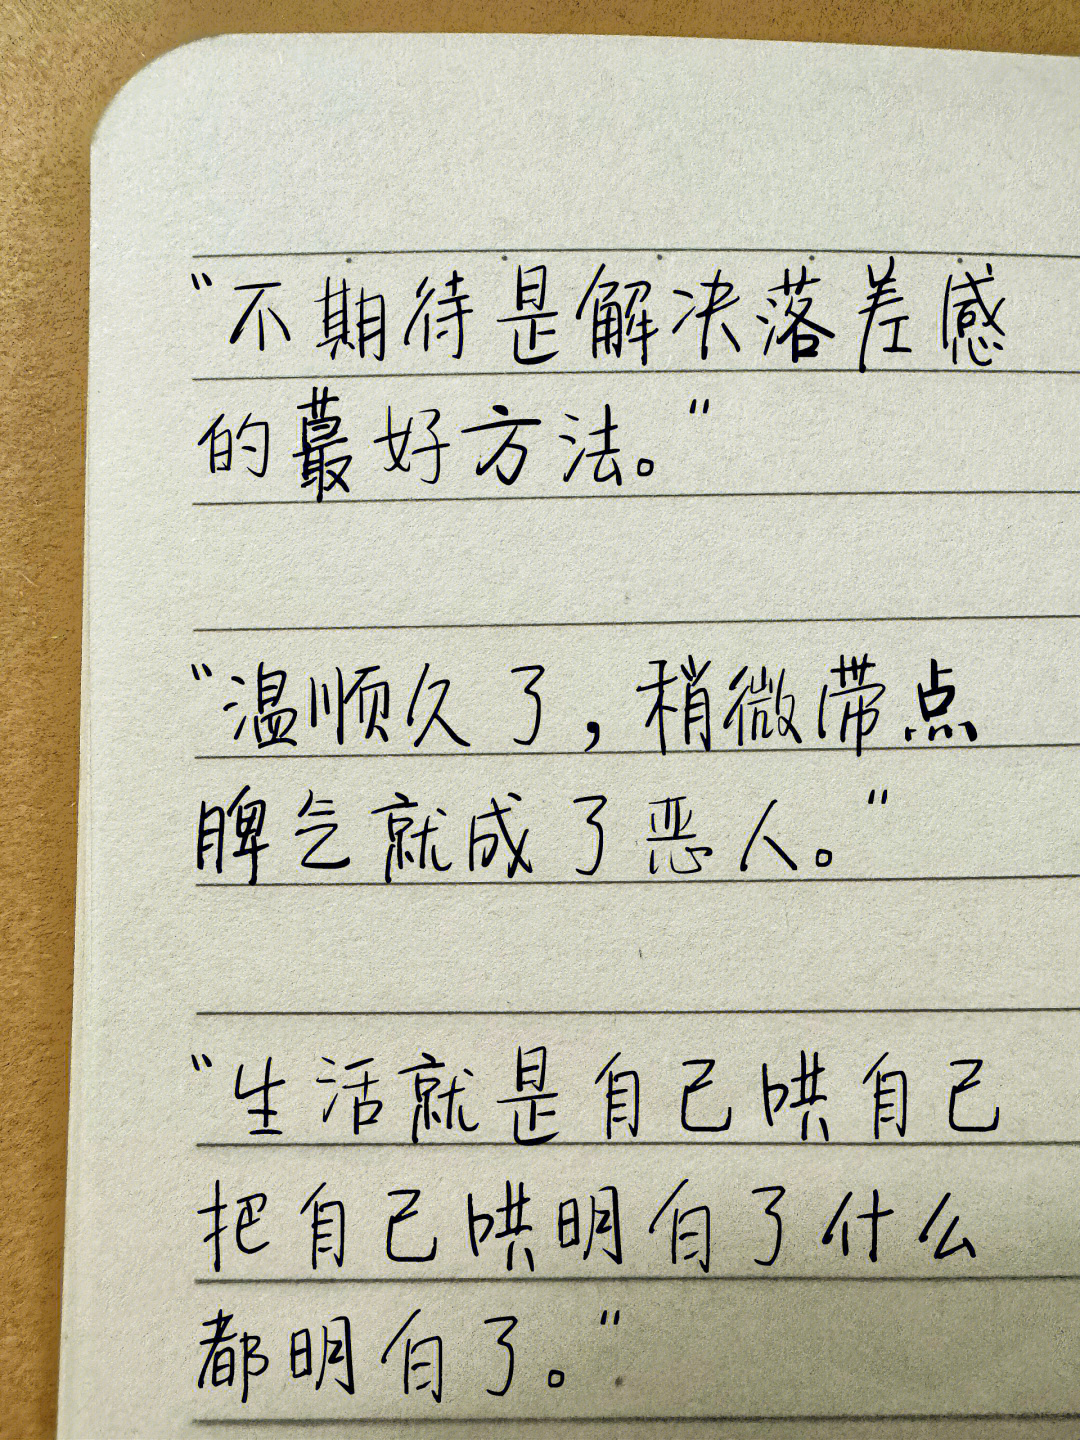 “不期待是解决落差感
的最好方法。”
“温顺久了，稍微带点
脾气就成了恶人。”
“生活就是自己哄自己
把自己哄明白了什么
都明白了。”